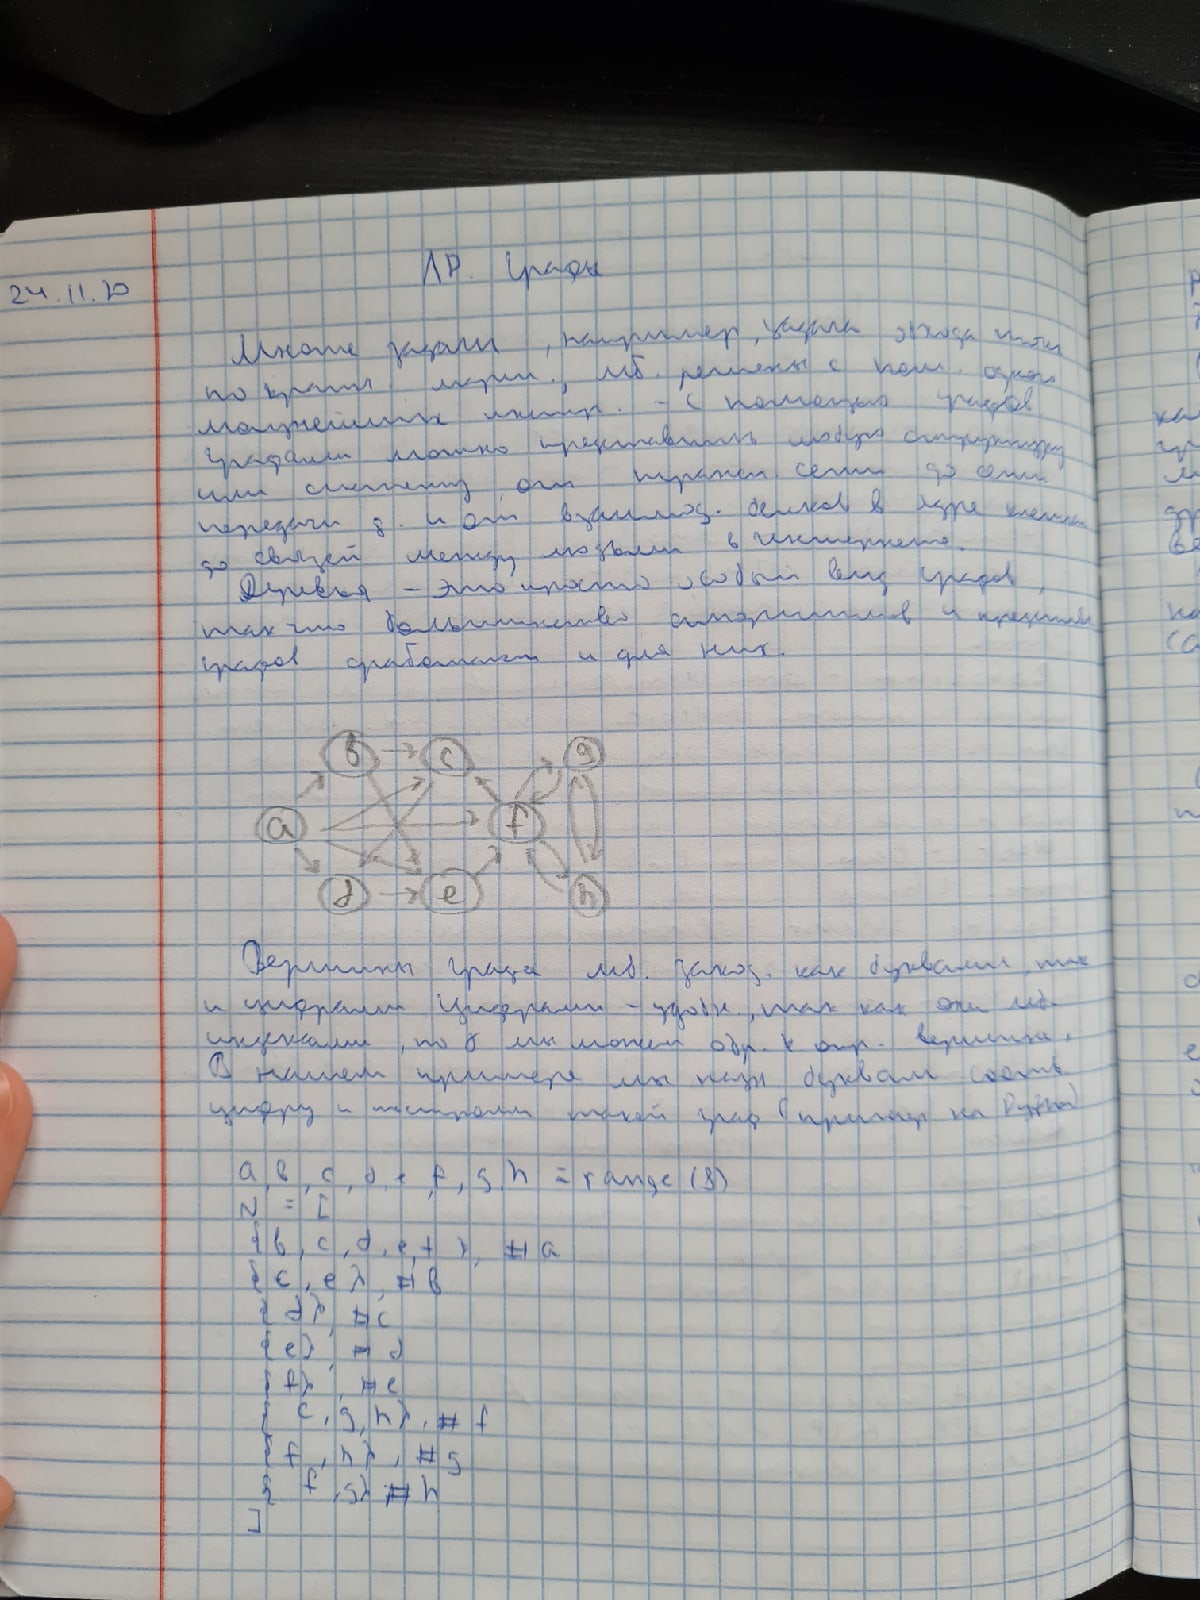 24.11.20
ЛР. Графы
Многие задачи, например, задача обхода точек
по кратч. , мб. решены с пом. одного
мощнейших инстр. - с помощью графов
Графами можно представить любую структуру
или систему, от трансп. сети до сети
передачи д. и от взаимод. белков в ядре клетки
до связей между людьми в интернете.
Деревья - это просто особый вид графов,
так что большинство алгоритмов и представл.
графов сработают и для них.
b c g
a f
d e h
Вершины графа мб. как буквами, так
и цифрами. Цифрами - удобн., так как они мб.
индексами, по к мы можем обр. к опр. вершине.
В нашем примере мы буквам соотв.
цифру и построим такой граф (пример на Python)
a, b, c, d, e, f, g, h = range(8)
N = [
{b, c, d, e, f}, #a
{c, e}, #b
{d}, #c
{e}, #d
{f}, #e
{c, g, h}, #f
{f, h}, #g
{f, g} #h
]